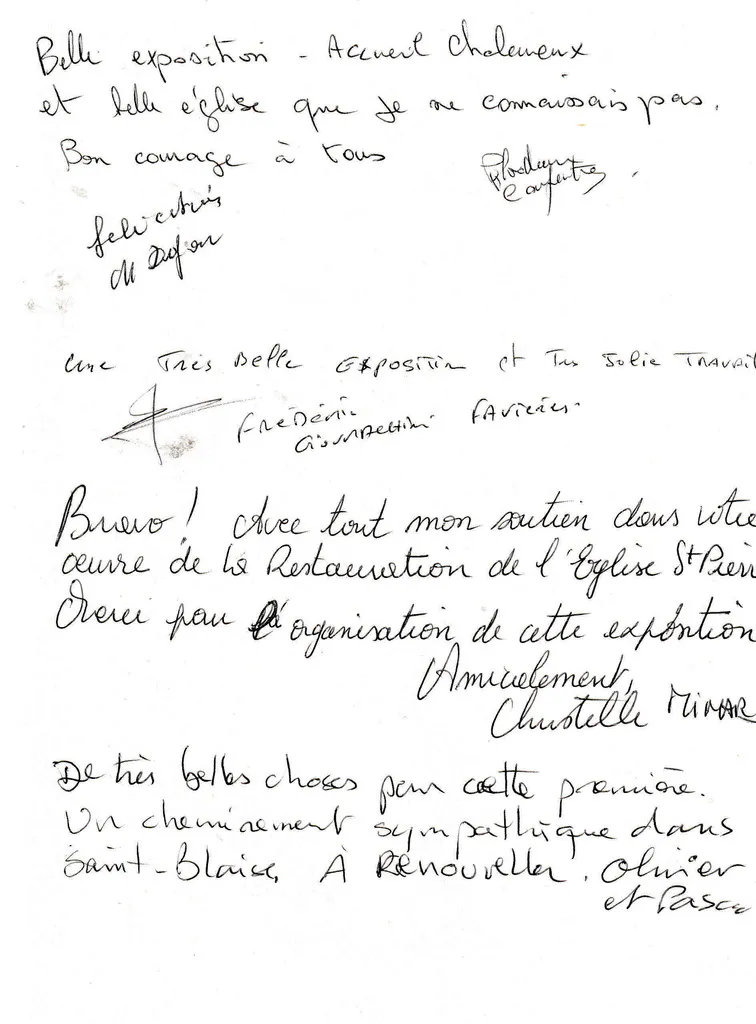 Belle exposition - Accueil chaleureux
et belle église que je ne connaissais pas.
Bon courage à tous
Carpentras
une Très Belle Exposition et Très Jolie Travail
Frédéric
Favières.
Bravo ! Avec tout mon soutien dans votre
œuvre de la Restauration de l'Eglise St Pierr
Merci pour l'organisation de cette exposition
Amicalement,
Christelle MIMAR
De très belles choses pour cette première.
Un cheminement sympathique dans
Saint-Blaise, À Renouveller. Olivier
et Pasca